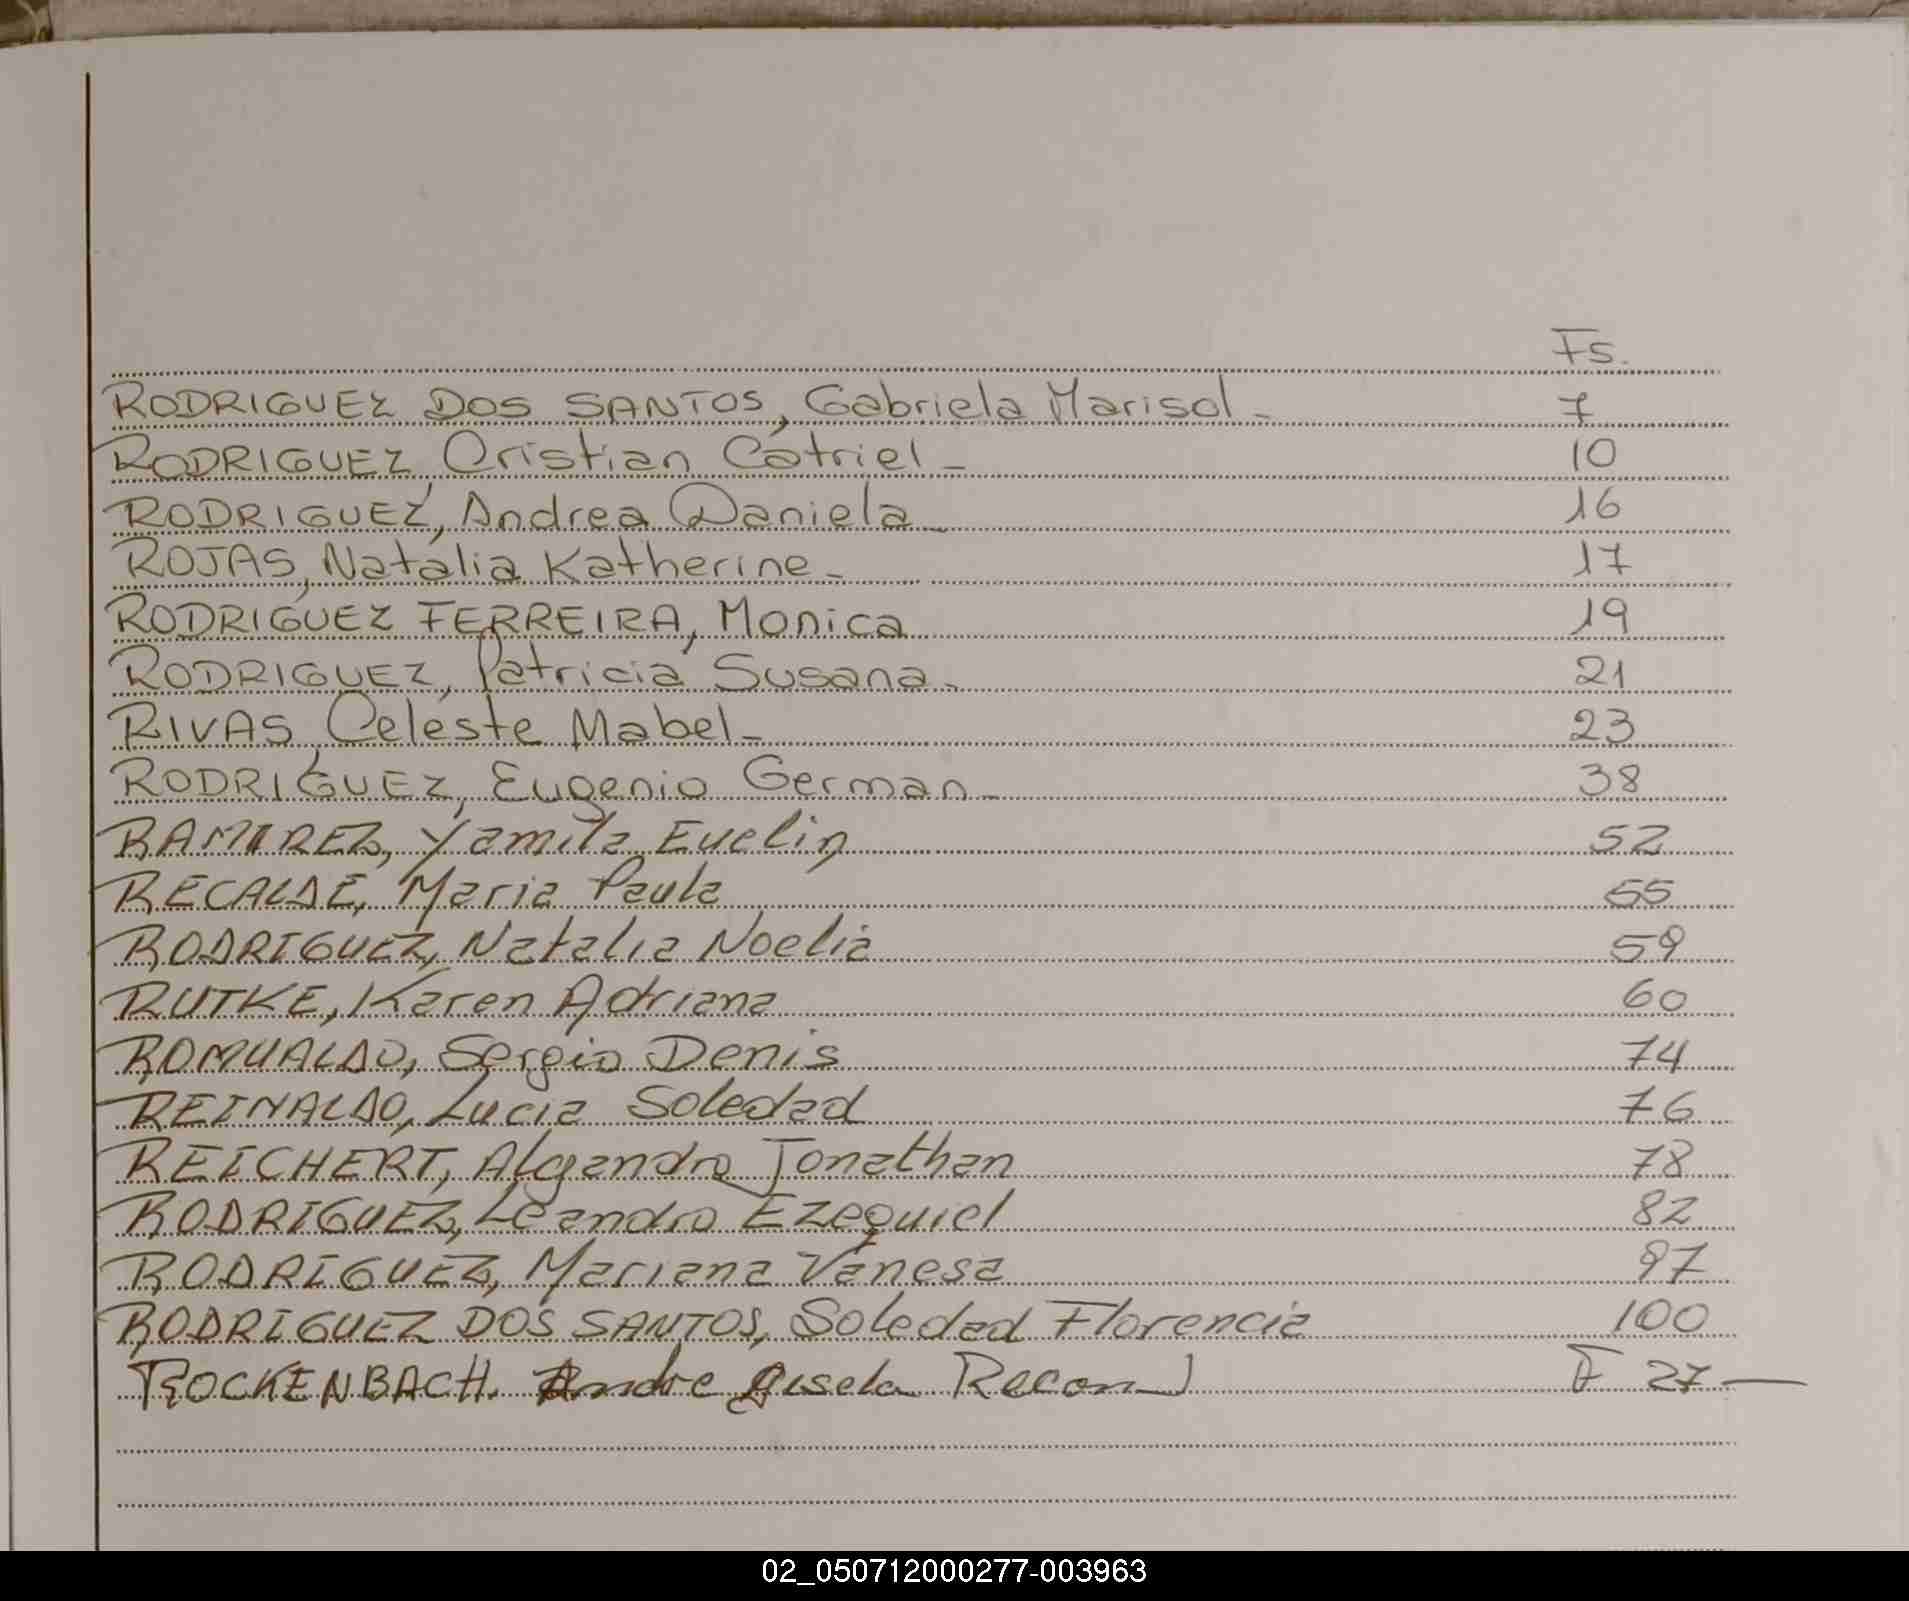 Fs.
RODRIGUEZ DOS SANTOS, Gabriela Marisol - 7
RODRIGUEZ, Cristian Catriel - 10
RODRIGUEZ, Andrea Daniela - 16
ROJAS, Natalia Katherine - 17
RODRIGUEZ FERREIRA, Monica 19
RODRIGUEZ, Patricia Susana - 21
RIVAS, Celeste Mabel - 23
RODRIGUEZ, Eugenio German - 38
RAMIREZ, Yamila Evelin 52
RECALDE, Maria Paula 55
RODRIGUEZ, Natalia Noelia 59
RUTKE, Karen Adriana 60
ROMUALDO, Sergio Denis 74
REINALDO, Lucia Soledad 76
REICHERT, Alejandro Jonathan 78
RODRIGUEZ, Leandro Ezequiel 82
RODRIGUEZ, Mariana Vanesa 97
RODRIGUEZ DOS SANTOS, Soledad Florencia 100
ROCKENBACH. Andre Gisela Recon F 27 —
02_050712000277-003963